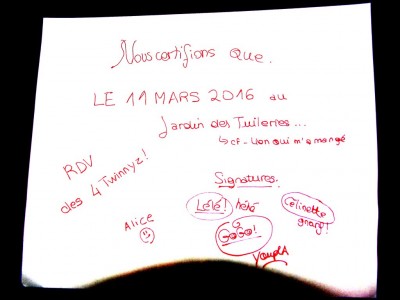 Nous certifions que.
LE 11 MARS 2016 au
Jardin des Tuileries...
↳ cf - Lion qui m'a mangé
RDV
des 4 Twinnyz!
Signatures.
Lélé! hélé
Célinette
gnarf!
Alice
GoGo!
YouplA